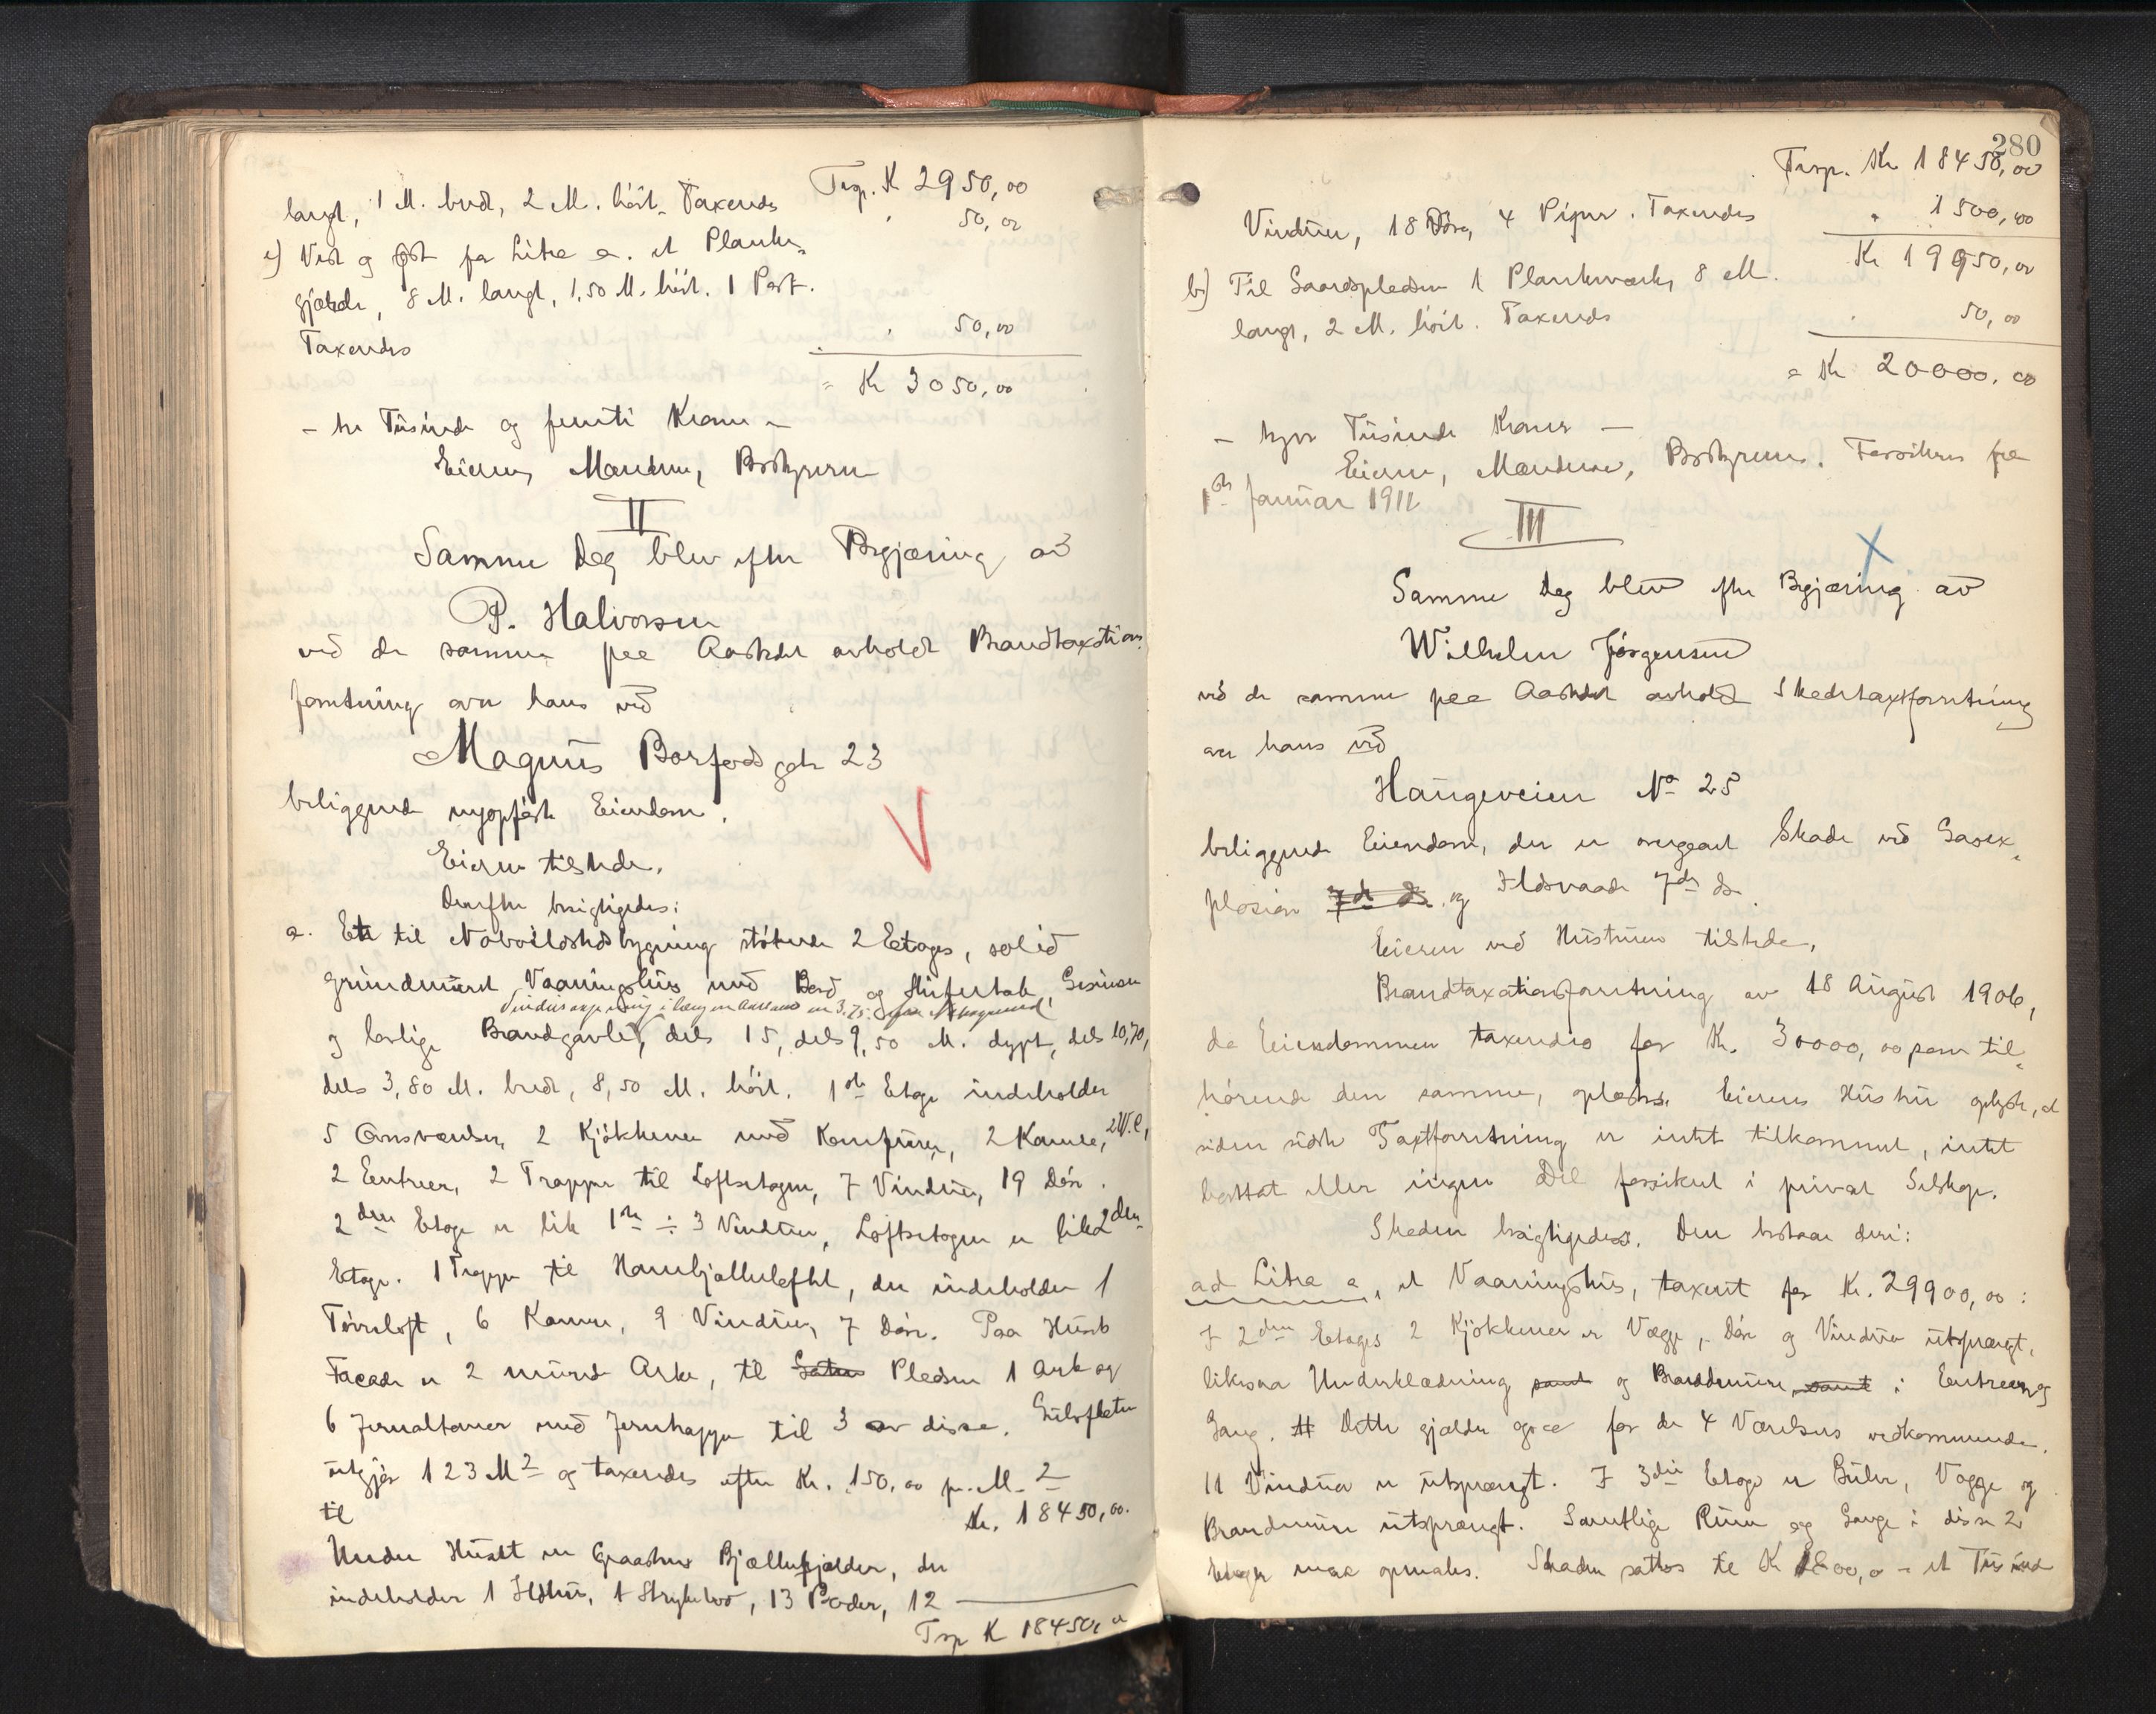 Trsp. K 2950,00
langt, 1 M. bredt, 2 M. höit. Taxeredes
" 50,00
c) Vest og Øst for Litra a. et Planke-
gjærde, 8 M. langt, 1,50 M. höit. 1 Port.
Taxeredes " 50,00
= Kr 3050,00
- tre Tusinde og femti Kroner -
Eieren, Mændene, Bestyreren
II
Samme Dag blev efter Begjæring av
P. Halvorsen
ved de samme paa Aastedet avholdt Brandtaxations-
forretning over hans ved
Magnus Barfods gate 23
beliggende nyopførte Eiendom.
Eieren tilstede.
Derefter besigtigedes:
a. Et til Nabovildstedsbygning stötende 2 Etages, solid
grundmuret Vaaningshus med Bord og Skifertak, Gesimser
og lovlige Brandgavle, dels 15, dels 9,50 M. dypt, dels 10,70,
dels 3,80 M. bredt, 8,50 M. höit. 1ste Etage indeholder
5 Værelser, 2 Kjökkener med Komfurer, 2 Kamre, 2 W.C,
2 Entreer, 2 Trapper til Loftsetagen, 7 Vinduer, 19 Döre.
2den Etage er lik 1ste ÷ 3 Vinduer, Loftsetagen er lik 2den
Etage. 1 Trappe til Hanebjælkeloftet, der indeholder 1
Törreloft, 6 Kamre, 9 Vinduer, 7 Döre. Paa Husets
Facade er 2 murede Arker, til Pladsen 1 Ark og
6 Jernaltaner med Jerntrapper til 3 av disse. Gulvflaten
utgjör 123 M2 og taxeredes efter Kr. 150,00 pr. M2
til Kr. 18450,00.
Under Huset er Graastens Bjælkekjelder, der
indeholder 1 Ildhus, 1 Strykebod, 13 Boder, 12
Trsp K 18450,00
280
Trsp. Kr 18450,00
Vinduer, 18 Döre, 4 Piper. Taxeredes " 1500,00
Kr 19950,00
b) Til Gaardspladsen 1 Plankeverk, 8 M.
langt, 2 M. höit. Taxeredes " 50,00
= Kr 20000,00
- tyve Tusinde Kroner -
Eieren, Mændene, Bestyreren. Forsikres fra
1ste Januar 1912
III
Samme Dag blev efter Begjæring av
Wilhelm Jörgensen
ved de samme paa Aastedet avholdt Skadetaxtforretning
over hans ved
Haugeveien No 25
beliggende Eiendom, der er overgaaet Skade ved Gasex-
plosion 7de ds. og Ildsvaade 7de ds.
Eieren ved Hustruen tilstede.
Brandtaxationsforretning av 18 August 1906,
da Eiendommen taxeredes for Kr. 30000,00 som til-
hörende den samme, oplæstes. Eierens Hustru oplyste, at
siden sidste Taxtforretning er intet tilkommet, intet
borttat eller ingen Del forsikret i privat Selskap.
Skaden besigtigedes. Den bestaar deri:
ad Litra a, et Vaaningshus, taxert for Kr. 29900,00:
I 2den Etages 2 Kjökkener er Vægge, Döre og Vinduer utsprængt,
likesaa Underklædning samt og Brandmure, samt i Entreer og
Gang. Dette gjælder ogsaa for de 4 Værelsers vedkommende.
11 Vinduer er utsprængt. I 3die Etage er Gulver, Vægge og
Brandmure utsprængt. Samtlige Rum og Gange i disse 2
Etager maa opmales. Skaden sattes til K 1800,00 - et Tusind